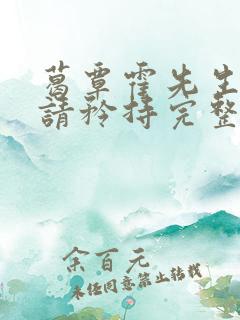 葛覃霍先生
請矜持完整
余百元
未经同意禁止转载